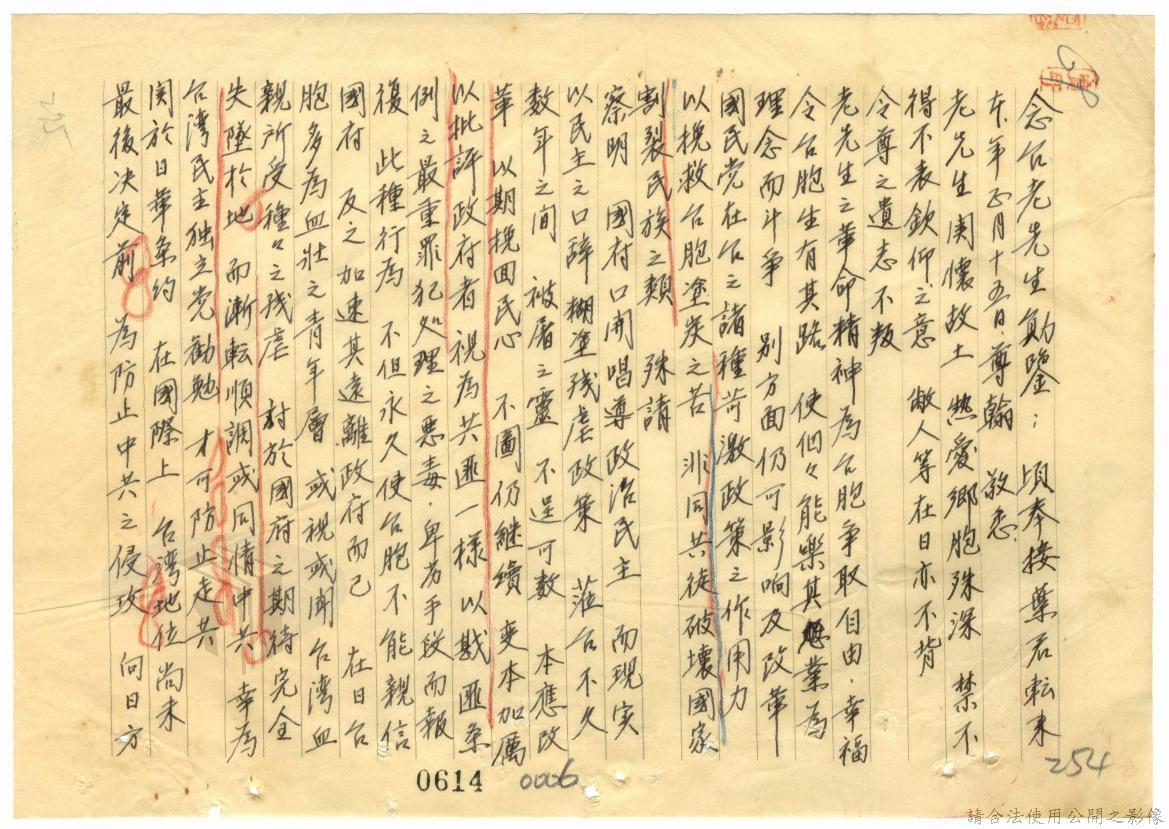 念台老先生勛鑒：頃奉接葉君転来
本年正月十五日尊翰 敬悉
老先生関懷故土 熱愛鄉胞殊深 禁不
得不表欽仰之意 敝人等在日亦不背
令尊之遺志不叛
老先生之革命精神為台胞争取自由．幸福
令台胞生有其路 使個々能樂其業為
理念而斗争 别方面仍可影响及改革
國民党在台之諸種苛激政策之作用力
以挽救台胞塗炭之苦 非同共徒破壞國家
割裂民族之類 殊請
察明 國府口開唱導政治民主 而現実
以民主之口辞糊塗残虐政策 蒞台不久
数年之间 被屠之靈 不逞可数 本應改
革 以期挽回民心 不圖仍継續 变本加厲
以批評政府者視為共匪一樣 以戡匪条
例之最重罪犯处理之悪毒．卑劣手段而報
復 此種行為 不但永久使台胞不能親信
國府 反之加速其遠離政府而已 在日台
胞多為血壯之青年層 或視或聞台湾血
親所受種々之残虐 对於國府之期待完全
失墜於地 而漸転順調或同情中共 幸為
台湾民主独立党勧勉 才可防止走共
関於日華条约 在國際上 台湾地位尚未
最後决定前 為防止中共之侵攻 向日方
254
0614
0006
請合法使用公開之影像